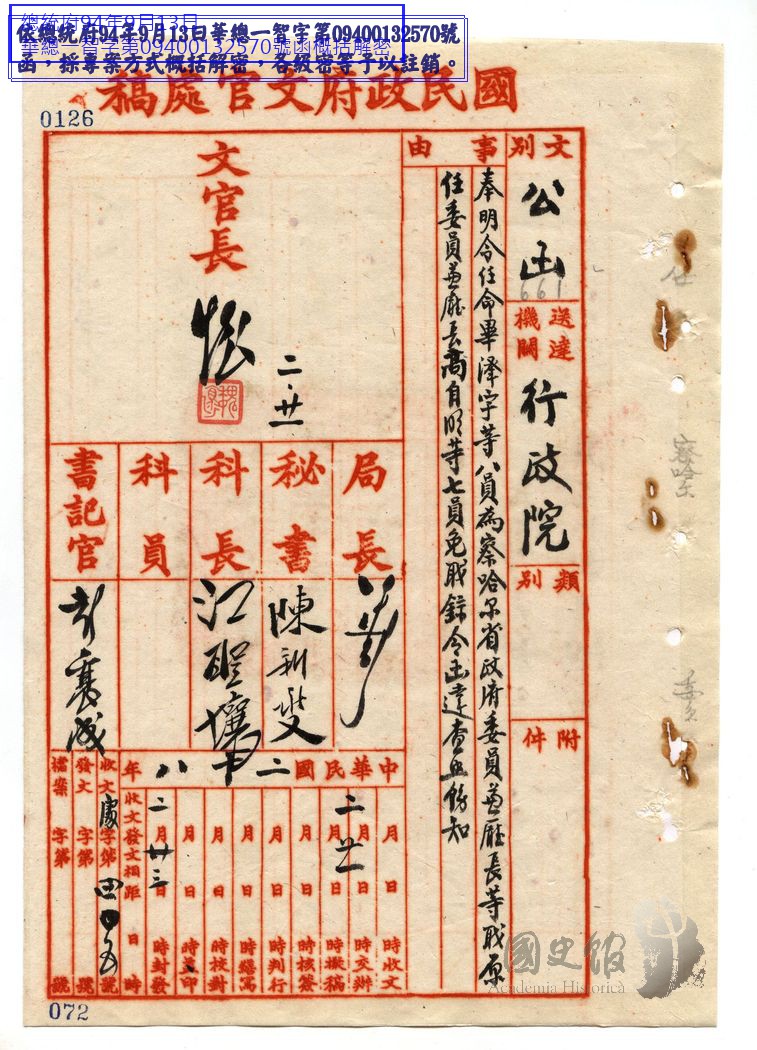 總統府94年9月13日
華總一智字第09400132570號函概括解密
依總統府94年9月13日華總一智字第09400132570號
函，採專案方式概括解密，各級密等予以註銷。
國民政府文官處稿
0126
文別
公函
661
送達機關
行政院
類別
附件
事由
奉明令任命畢澤宇等八員為察哈尔省政府委員並廳長等职原
任委員並廳長高自明等七員免职錄令函達查照飭知
文官長
二、廿一
局長
秘書
陳
科長
科員
書記官
中華民國二八年
月 日 時收文
二月廿一日 時交辦
月 日 時擬稿
月 日 時核簽
月 日 時判行
月 日 時繕寫
月 日 時校對
月 日 時蓋印
二月廿三日 時封發
收文發文相距 日 時
收文處字第四〇五號
發文 字第 號
檔案 字第 號
察哈尔
委員
072
國史館
Academia Historica